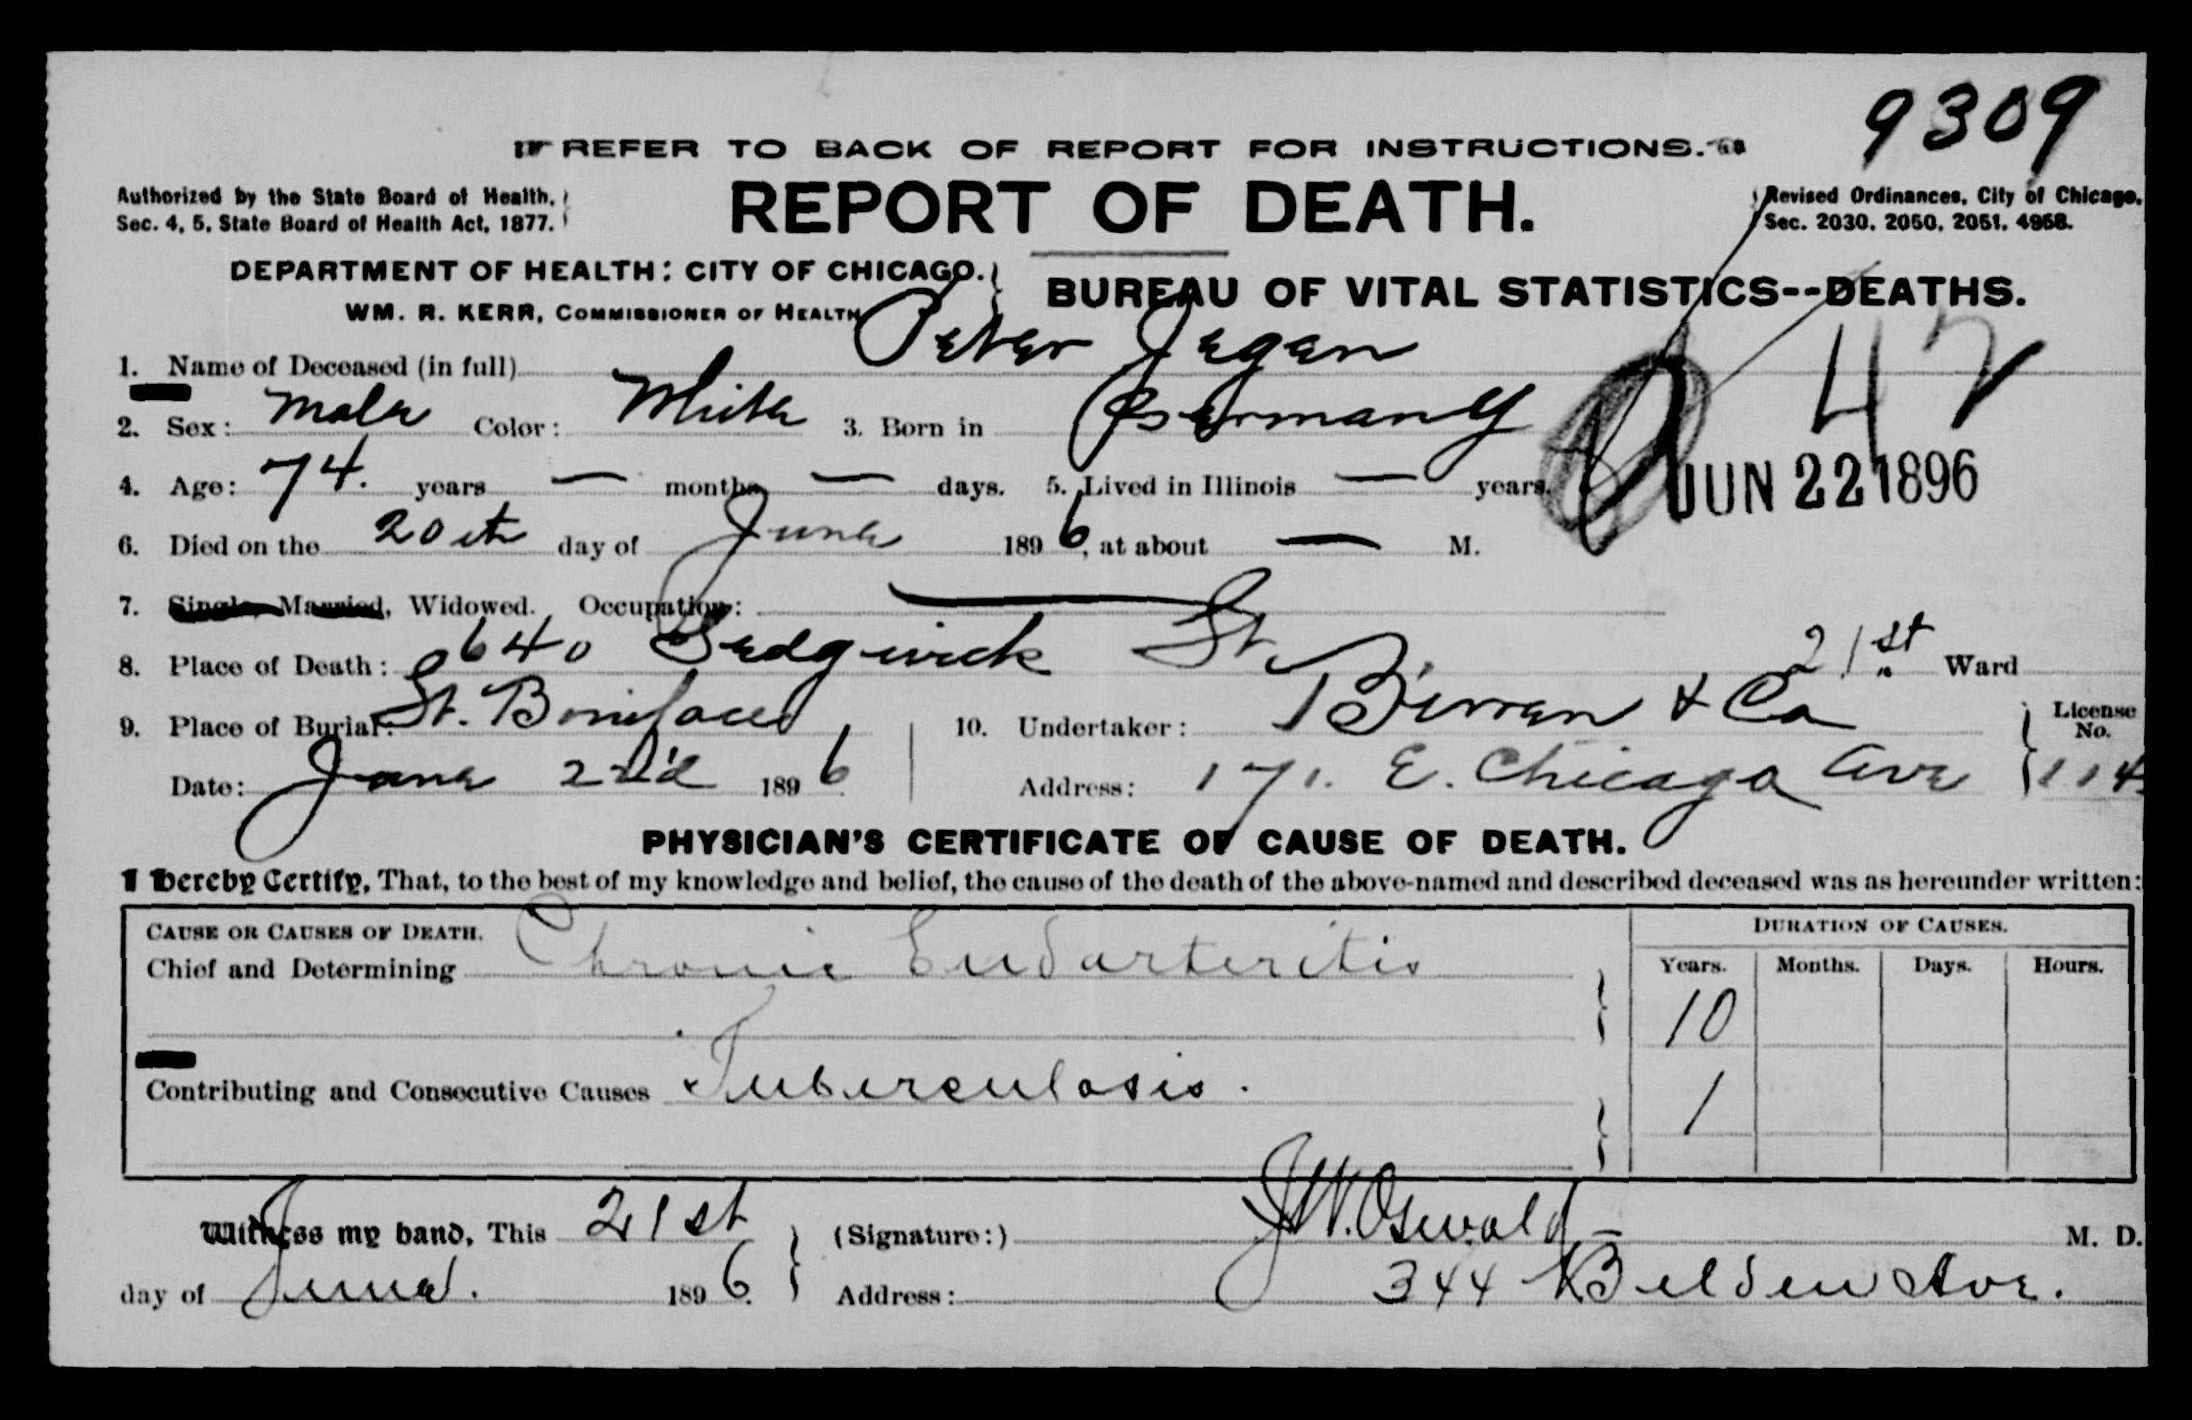 9309
REFER TO BACK OF REPORT FOR INSTRUCTIONS.
Authorized by the State Board of Health,
Sec. 4, 5, State Board of Health Act, 1877.
REPORT OF DEATH.
Revised Ordinances, City of Chicago.
Sec. 2030, 2050, 2051, 4958.
DEPARTMENT OF HEALTH: CITY OF CHICAGO.
WM. R. KERR, COMMISSIONER OF HEALTH
BUREAU OF VITAL STATISTICS--DEATHS.
1. Name of Deceased (in full) Peter Jegen
42
2. Sex: Male Color: White 3. Born in Germany
4. Age: 74. years — months — days. 5. Lived in Illinois — years.
JUN 22 1896
6. Died on the 20th day of June 1896, at about — M.
7. Single, Married, Widowed. Occupation: —
8. Place of Death: 640 Sedgwick St. 21st Ward
9. Place of Burial: St. Boniface 10. Undertaker: Birren & Co License No.
Date: June 22d 1896 Address: 171. E. Chicago Ave 114
PHYSICIAN'S CERTIFICATE OF CAUSE OF DEATH.
I hereby Certify, That, to the best of my knowledge and belief, the cause of the death of the above-named and described deceased was as hereunder written:
CAUSE OR CAUSES OF DEATH. DURATION OF CAUSES.
Chief and Determining Chronic Endarteritis Years. Months. Days. Hours.
10
Contributing and Consecutive Causes Tuberculosis. 1
Witness my hand, This 21st (Signature:) J.W. Oswald M. D.
day of June. 1896. Address: 344 Belden Ave.